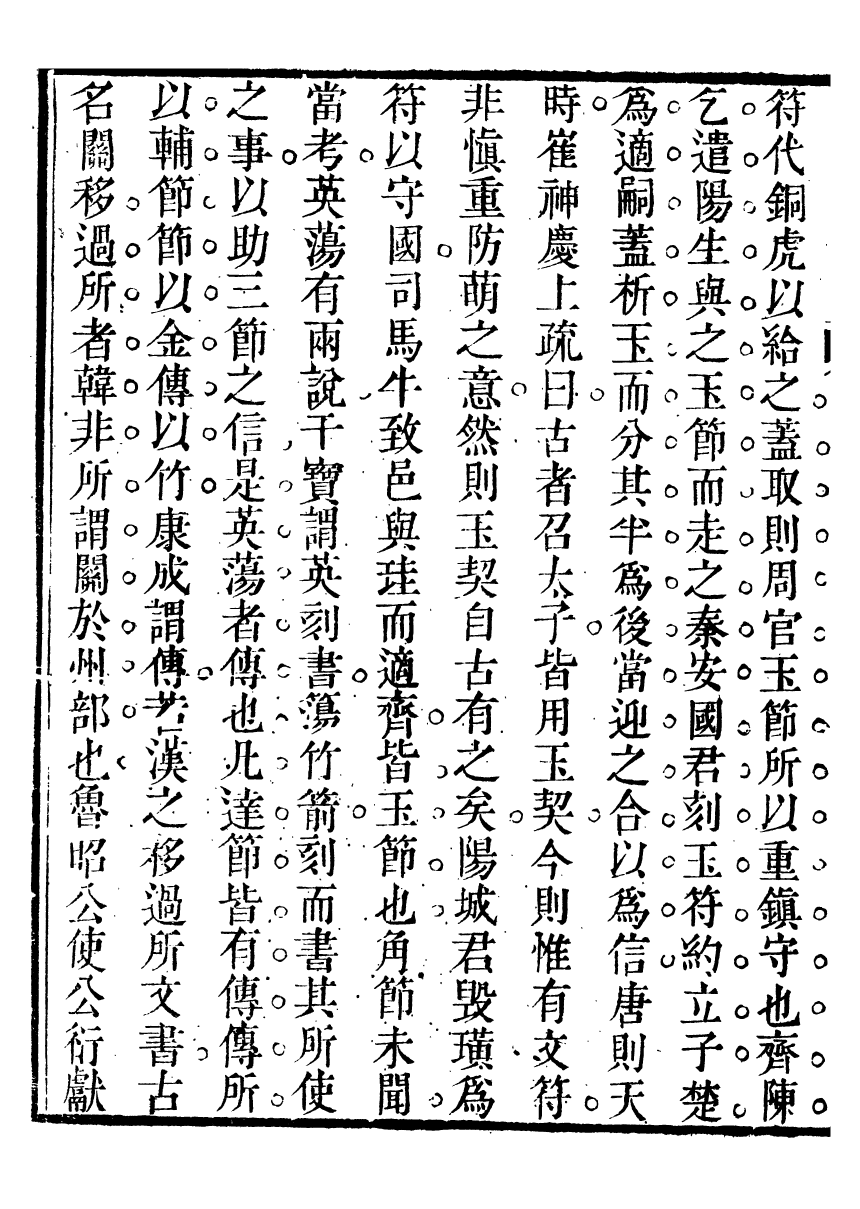 符代銅虎以給之蓋取則周官玉節所以重鎮守也齊陳
乞遣陽生與之玉節而走之秦安國君刻玉符約立子楚
爲適嗣蓋析玉而分其半爲後當迎之合以爲信唐則天
時崔神慶上疏曰古者召太子皆用玉契今則惟有文符
非愼重防萌之意然則玉契自古有之矣陽城君毁璜爲
符以守國司馬牛致邑與珪而適齊皆玉節也角節未聞
當考英蕩有兩說干寶謂英刻書蕩竹箭刻而書其所使
之事以助三節之信是英蕩者傳也凡達節皆有傳傳所
以輔節節以金傳以竹康成謂傳若漢之移過所文書古
名關移過所者韓非所謂關於州部也魯昭公使公衍獻